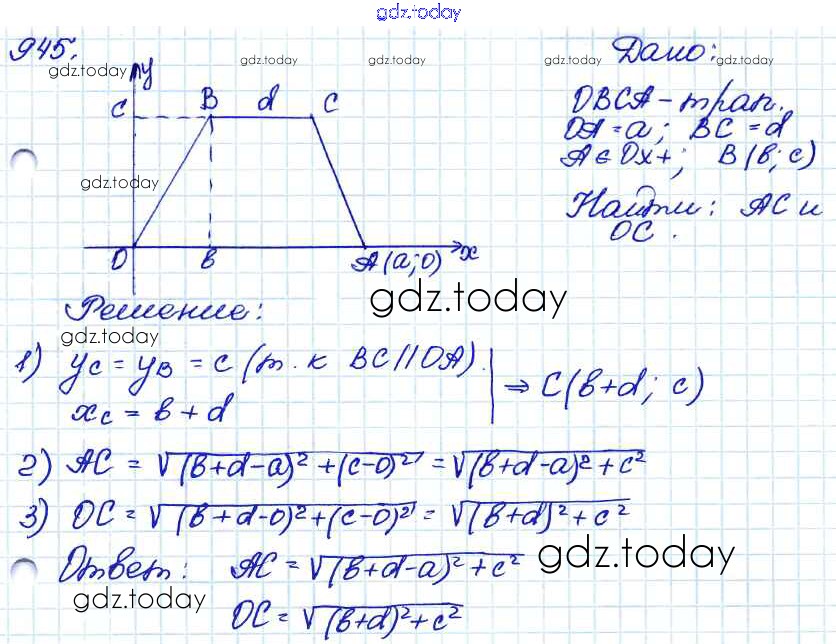 gdz.today
945.
gdz.today
gdz.today
gdz.today
gdz.today
gdz.today
y
C
B
d
C
gdz.today
O
в
A(a;0)
x
Дано:
OBCA - трап.
OA = a; BC = d
A ∈ Ox+; B(в; c)
Найти: AC и
OC.
gdz.today
Решение:
gdz.today
1) y_C = y_B = c (т.к BC || OA).
x_C = в + d
⇒ C(в+d; c)
2) AC = √((в+d-a)² + (c-0)²) = √((в+d-a)² + c²)
3) OC = √((в+d-0)² + (c-0)²) = √((в+d)² + c²)
Ответ: AC = √((в+d-a)² + c²)
gdz.today
gdz.today
OC = √((в+d)² + c²)